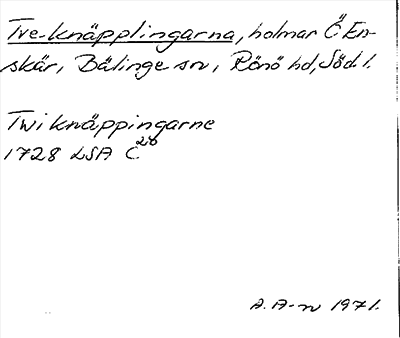 Tre-knäpplingarna, holmar Ö En-
skär, Bälinge sn, Rönö hd, Söd. l.
Twi knäppingarne
1728 LSA C 20
A. A-n 1971.